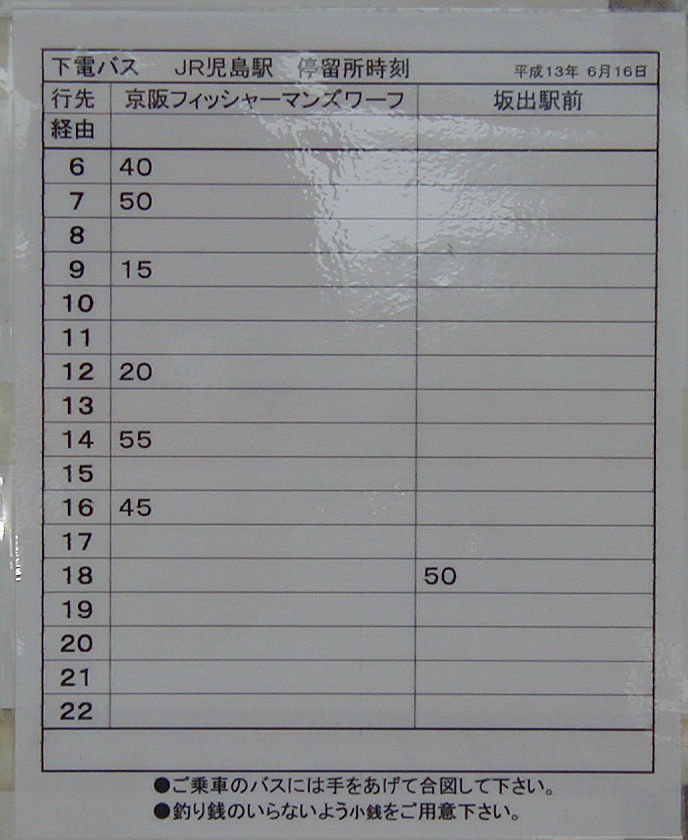 下電バス JR児島駅 停留所時刻 平成13年 6月16日
行先 京阪フィッシャーマンズワーフ 坂出駅前
経由
6 40
7 50
8
9 15
10
11
12 20
13
14 55
15
16 45
17
18 50
19
20
21
22
●ご乗車のバスには手をあげて合図して下さい。
●釣り銭のいらないよう小銭をご用意下さい。